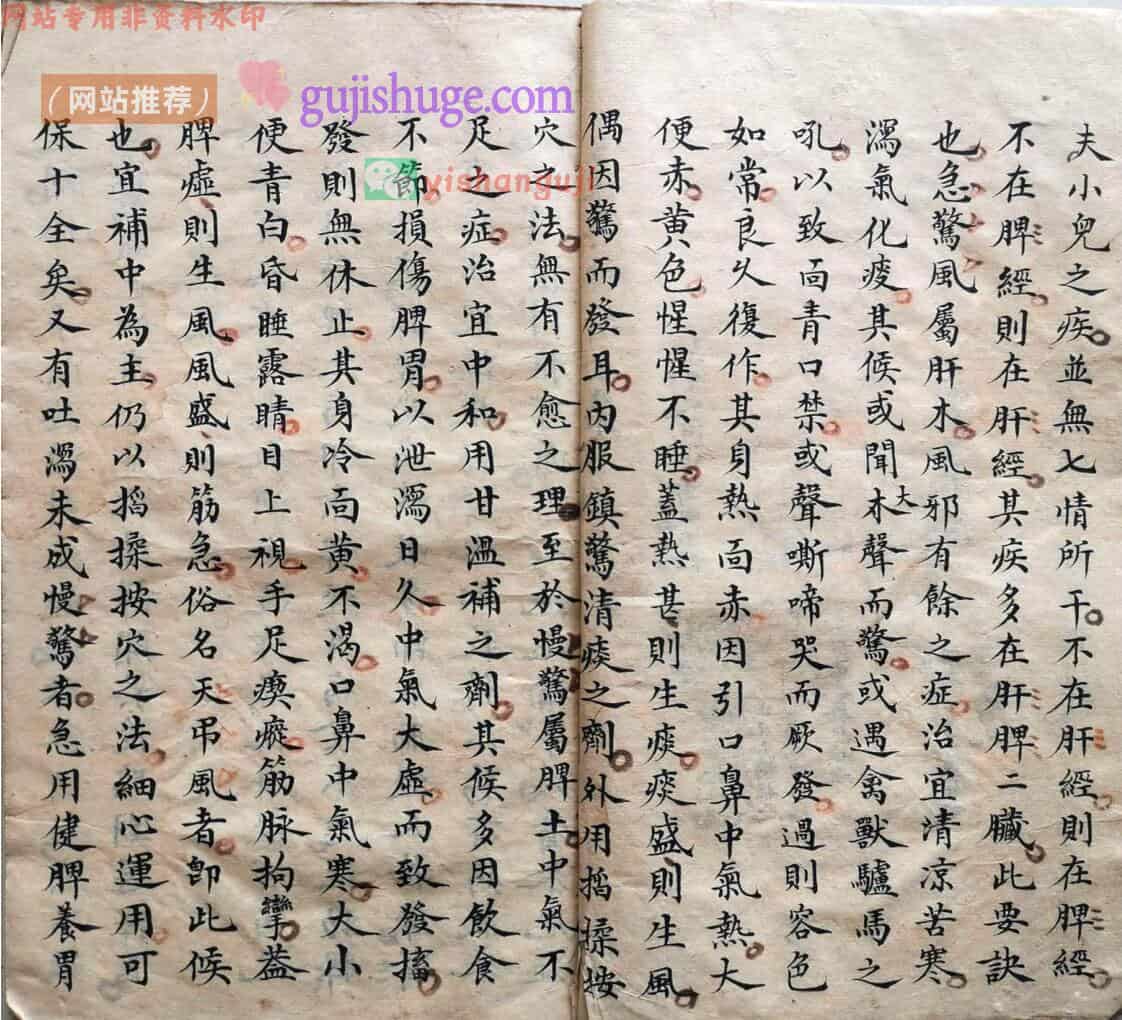 网站专用非资料水印
（网站推荐）
gujishuge.com
yishanguji
夫小兒之疾並無七情所干不在肝經則在脾經
不在脾經則在肝經其疾多在肝脾二臟此要訣
也急驚風屬肝木風邪有餘之症治宜清涼苦寒
瀉氣化痰其候或聞木聲而驚或遇禽獸驢馬之
大
吼以致面青口禁或聲嘶啼哭而厥發過則容色
如常良久復作其身熱面赤因引口鼻中氣熱大
便赤黄色惺惺不睡蓋熱甚則生痰痰盛則生風
偶因驚而發耳内服鎮驚清痰之劑外用搯揉按
穴之法無有不愈之理至於慢驚屬脾土中氣不
足之症治宜中和用甘溫補之劑其候多因飲食
不節損傷脾胃以泄瀉日久中氣大虛而致發搐
發則無休止其身冷面黄不渴口鼻中氣寒大小
便青白昏睡露睛目上視手足瘈瘲筋脉拘攣蓋
脾虛則生風風盛則筋急俗名天吊風者卽此候
也宜補中為主仍以搯揉按穴之法細心運用可
保十全矣又有吐瀉未成慢驚者急用健脾養胃